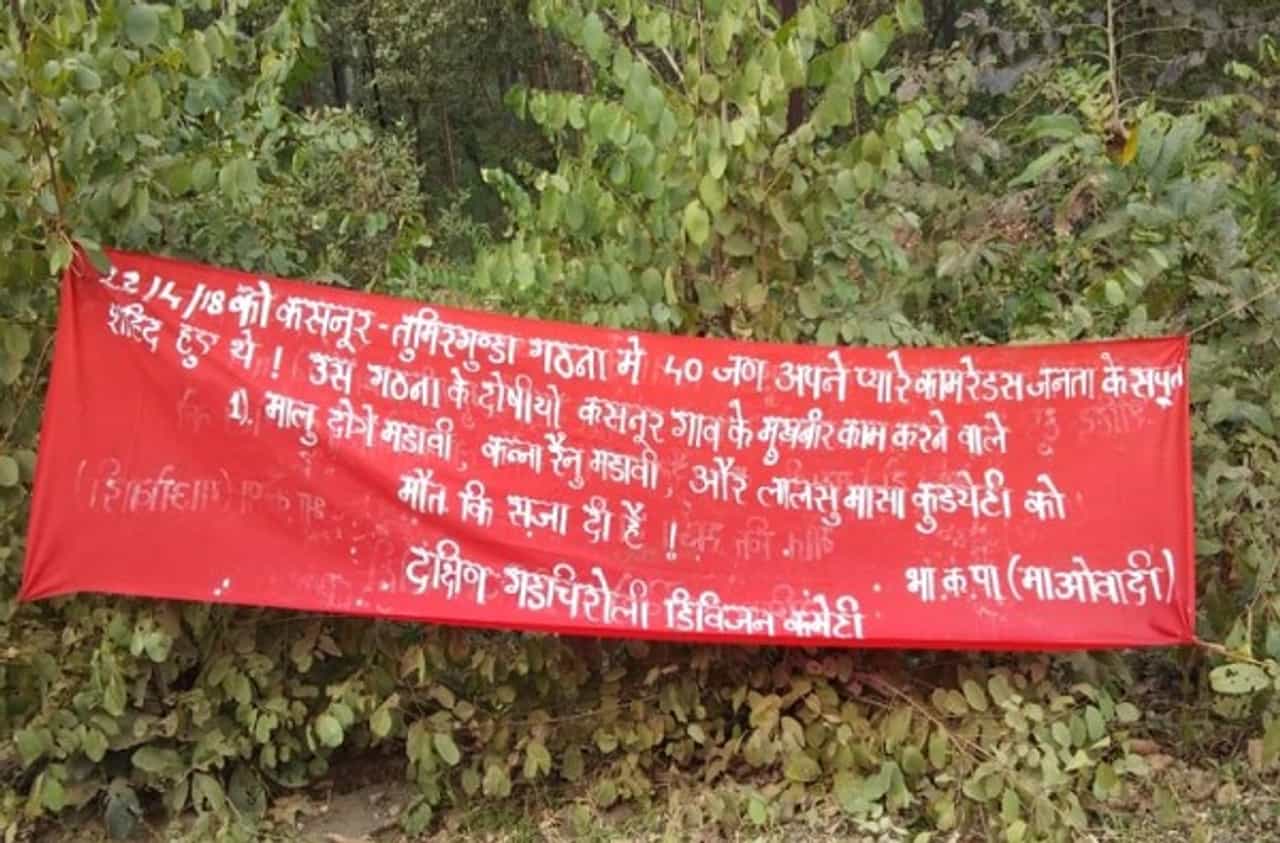 22/4/18 को कसनूर - तुमिरगुण्डा गठना मे 40 जण अपने प्यारे कामरेडस जनता के सपूत
शहिद हुए थे ! उस गठना के दोषीयो कसनूर गाव के मूखबीर काम करने वाले
1). मालु दोगे मडावी, कन्ना रैनु मडावी, और लालसु मासा कुडयेटी को
मौत कि सजा दी है !
भा क पा (माओवादी)
दक्षिण गडचिरोली डिविजन कमेटी